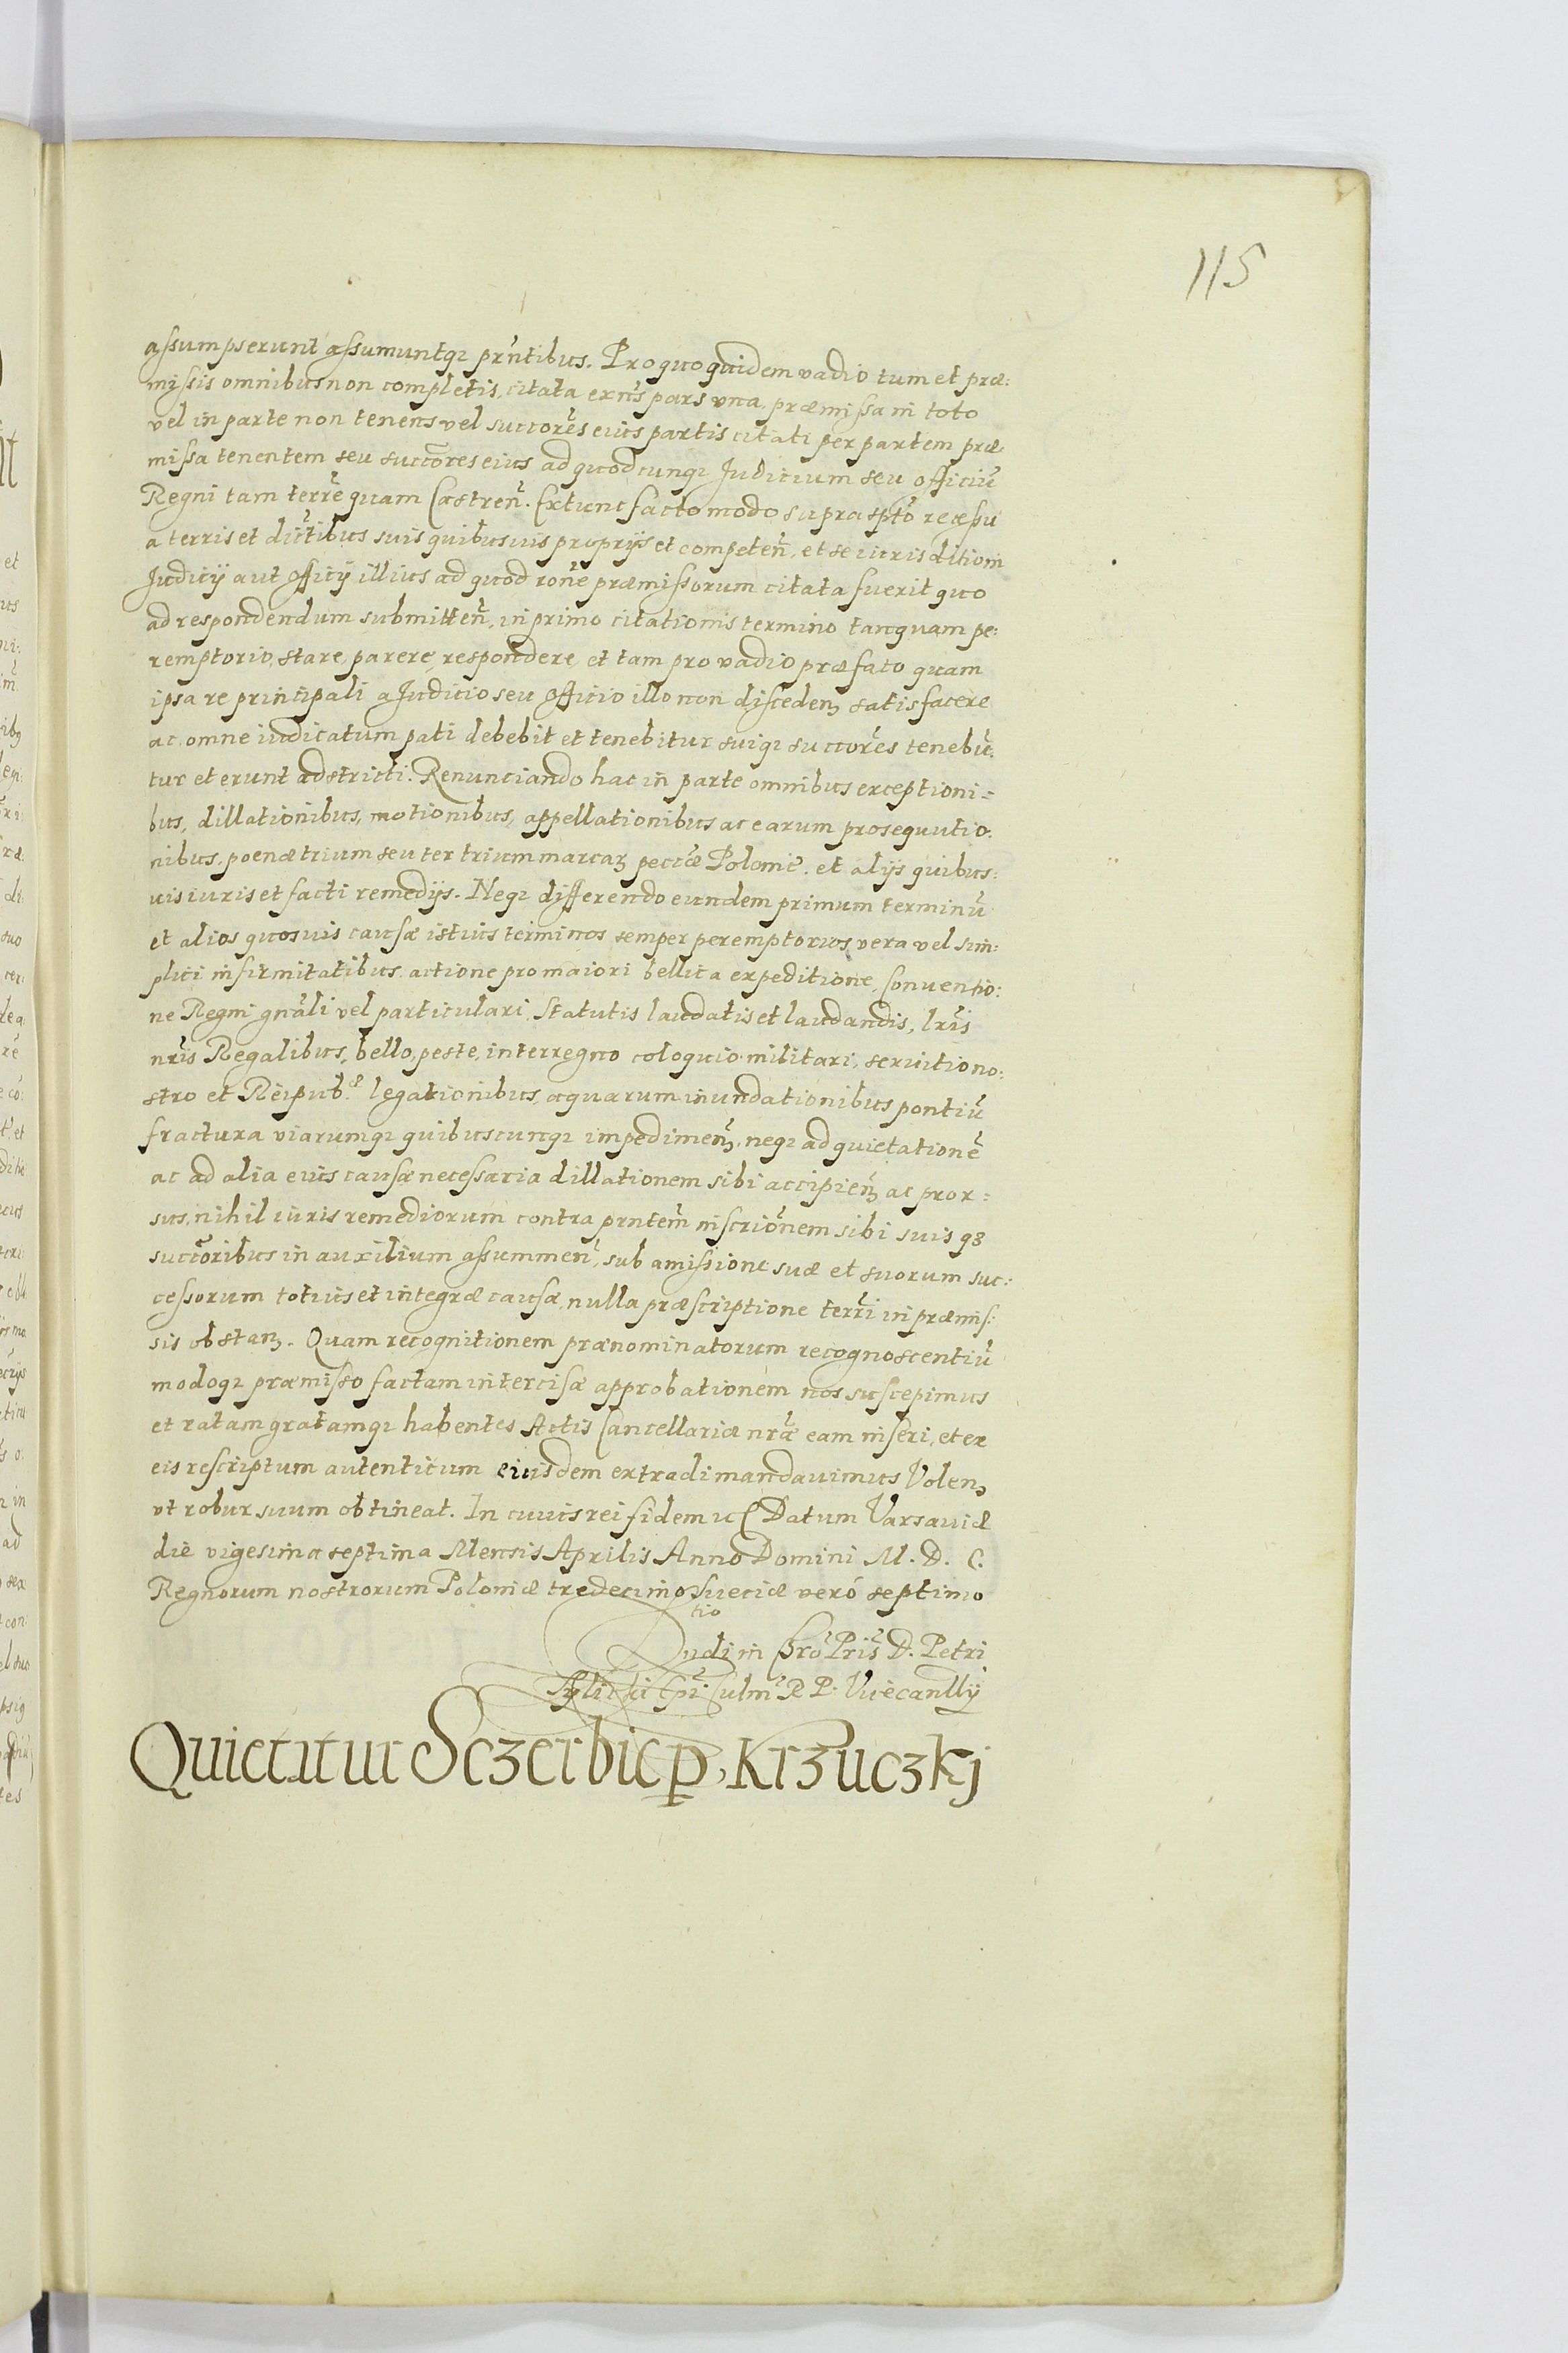 115
assumpserunt assumuntqꝫ prñtibus. Pro quo quidem vadio tum et præ:
missis omnibus non completis, citata exns pars una, præmissa in toto
vel in parte non tenens vel succores eius partis citati per partem præ:
missa tenentem seu succores eius ad quodcunqꝫ Judicium seu officiũ
Regni tam terrẽ quam Castreñ. Extunc facto modo suprasptõ recessu
a terris et dictibus suis quibusuis proprijs et competeñ, et se iurisditioni
Judicij aut officij illius ad quod rone præmissorum citata fuerit quo
ad respondendum submitteñ, in primo citationis termino tanquam pe:
remptorio, stare, parere, respondere, et tam pro vadio præfato quam
ipsa re principali a Judicio seu officio illo non discedenꝫ satisfacere
ac omne iudicatum pati debebit et tenebitur suiqꝫ succores tenebũ:
tur et erunt adstricti. Renunciando hac in parte omnibus exceptioni=
bus, dillationibus, motionibus, appellationibus ac earum prosequutio:
nibus, poenæ trium seu ter trium marcaꝫ peccæ Polonic̃. et alijs quibus:
uis iuris et facti remedijs. Neqꝫ differendo eundem primum terminũ
et alios quosuis causæ istius terminos semper peremptorios vera vel sim:
plici infirmitatibus, actione pro maiori bellica expeditione, Conuentio:
ne Regni gnãli vel particulari, Statutis laudatis et laudandis, lris
nris Regalibus, bello, peste, interregno coloquio militari, seruitio no:
stro et Reipub.æ legationibus, aquarum inundationibus pontiũ
fractura viarumqꝫ quibuscunqꝫ impedimenꝫ, neqꝫ ad quietationẽ
ac ad alia eius causæ necessaria dillationem sibi accipienꝫ ac pror=
sus, nihil iuris remediorum contra prntem inscrionem sibi suisqꝫ
succoribus in auxilium assummeñ, sub amissione suæ et suorum suc:
cessorum totius et integræ causæ, nulla præscriptione terri in præmis:
sis obstanꝫ. Quam recognitionem prænominatorum recognoscentiũ
modoqꝫ præmisso factam intercisæ approbationem nos suscepimus
et ratam gratamqꝫ habentes Actis Cancellariæ nræ eam inseri, et ex
eis rescriptum autenticum eiusdem extradi mandauimus Volenꝫ
vt robur suum obtineat. In cuius rei fidem Datum Varsauiæ
die vigesima septima Mensis Aprilis Anno Domini M. D. C.
Regnorum nostrorum Poloniæ tredecimo Sueciæ verò septimo
D. Petri
Tylicki Epi: Culm R P. Vicecanllij
Quietatur Sczerbic p, Krzuczkj